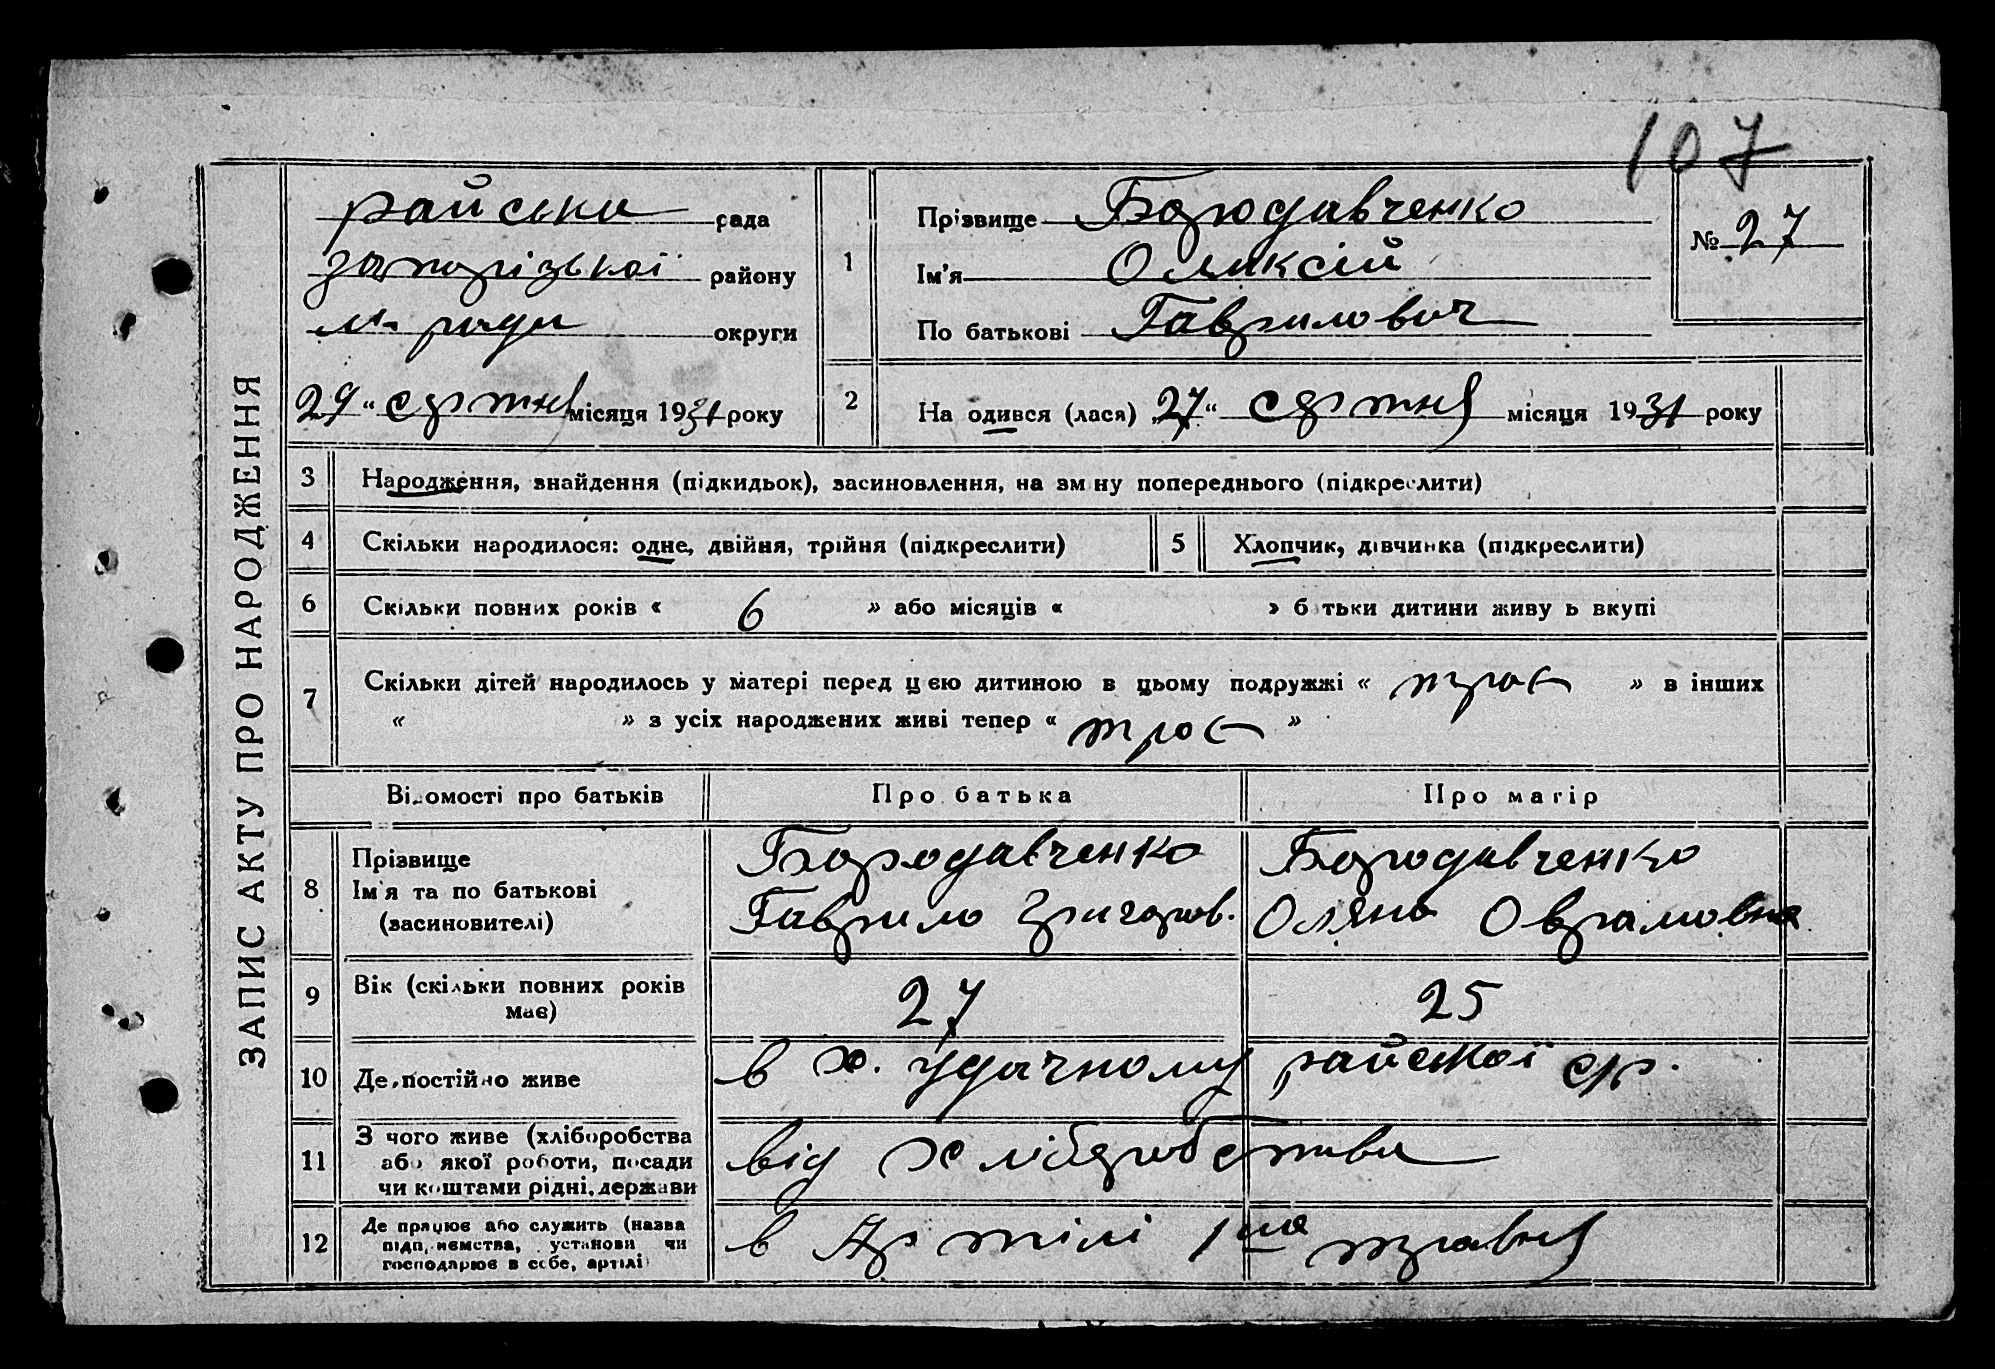 107
ЗАПИС АКТУ ПРО НАРОДЖЕННЯ
райська рада
запорізької району
м. ради округи
29 " серпня місяця 1931 року
1
Прізвище Бородавченко
Ім'я Олексій
По батькові Гаврилович
№ 27
2 На одився (лася) 27 " серпня місяця 1931 року
3 Народження, знайдення (підкидьок), засиновлення, на зм ну попереднього (підкреслити)
4 Скільки народилося: одне, двійня, трійня (підкреслити)
5 Хлопчик, дівчинка (підкреслити)
6 Скільки повних років « 6 » або місяців « » б тьки дитини живу ь вкупі
7 Скільки дітей народилось у матері перед цією дитиною в цьому подружжі « троє » в інших
« » з усіх народжених живі тепер « троє »
Відомості про батьків Про батька Про матір
8 Прізвище
Ім'я та по батькові
(засиновителі)
Бородавченко
Гаврило Григоров.
Бородавченко
Оляна Оврамовна
9 Вік (скільки повних років
має)
27 25
10 Де постійно живе в х. Удачному райської с/р.
11 З чого живе (хліборобства
або якої роботи, посади
чи коштами рідні, держави
від хліборобства
12 Де працює або служить (назва
підприємства, установи чи
господарює в себе, артілі)
в Артілі 1ша травня